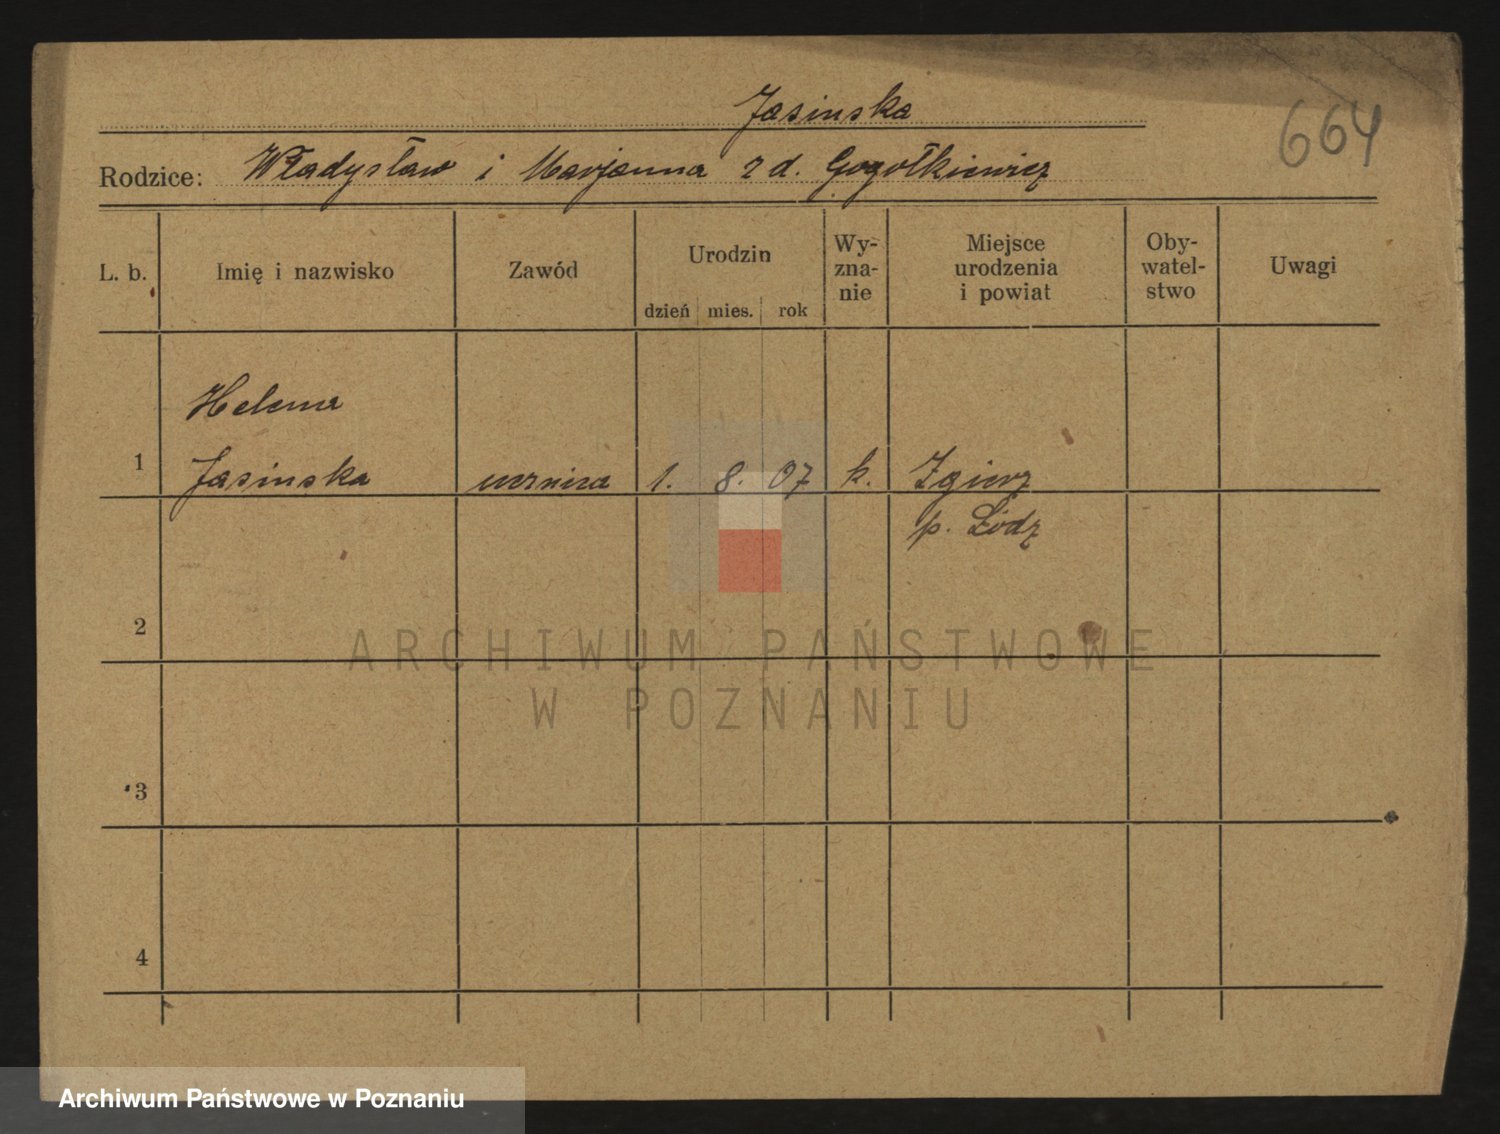 Jasinska
664
Rodzice: Władysław i Marjanna z d. Gogołkiewicz
L. b.
Imię i nazwisko
Zawód
Urodzin
dzień mies. rok
Wy-
zna-
nie
Miejsce
urodzenia
i powiat
Oby-
watel-
stwo
Uwagi
Helena
1 Jasinska uczenica 1. 8. 07 k. Zgierz
p. Łódz
2
3
4
ARCHIWUM PAŃSTWOWE
W POZNANIU
Archiwum Państwowe w Poznaniu